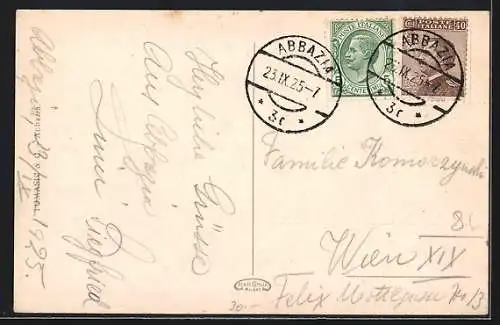 Abbazia, 23/IX 1925.
Herzliche Grüsse
aus Abbazia
Siegfried
POSTE ITALIANE
POSTE ITALIANE
40
ABBAZIA
23.IX.25-7
* 3r *
ABBAZIA
IX.25-7
* 3r *
Familie Komorzynski
Wien XIX
Felix Mottlgasse
30-